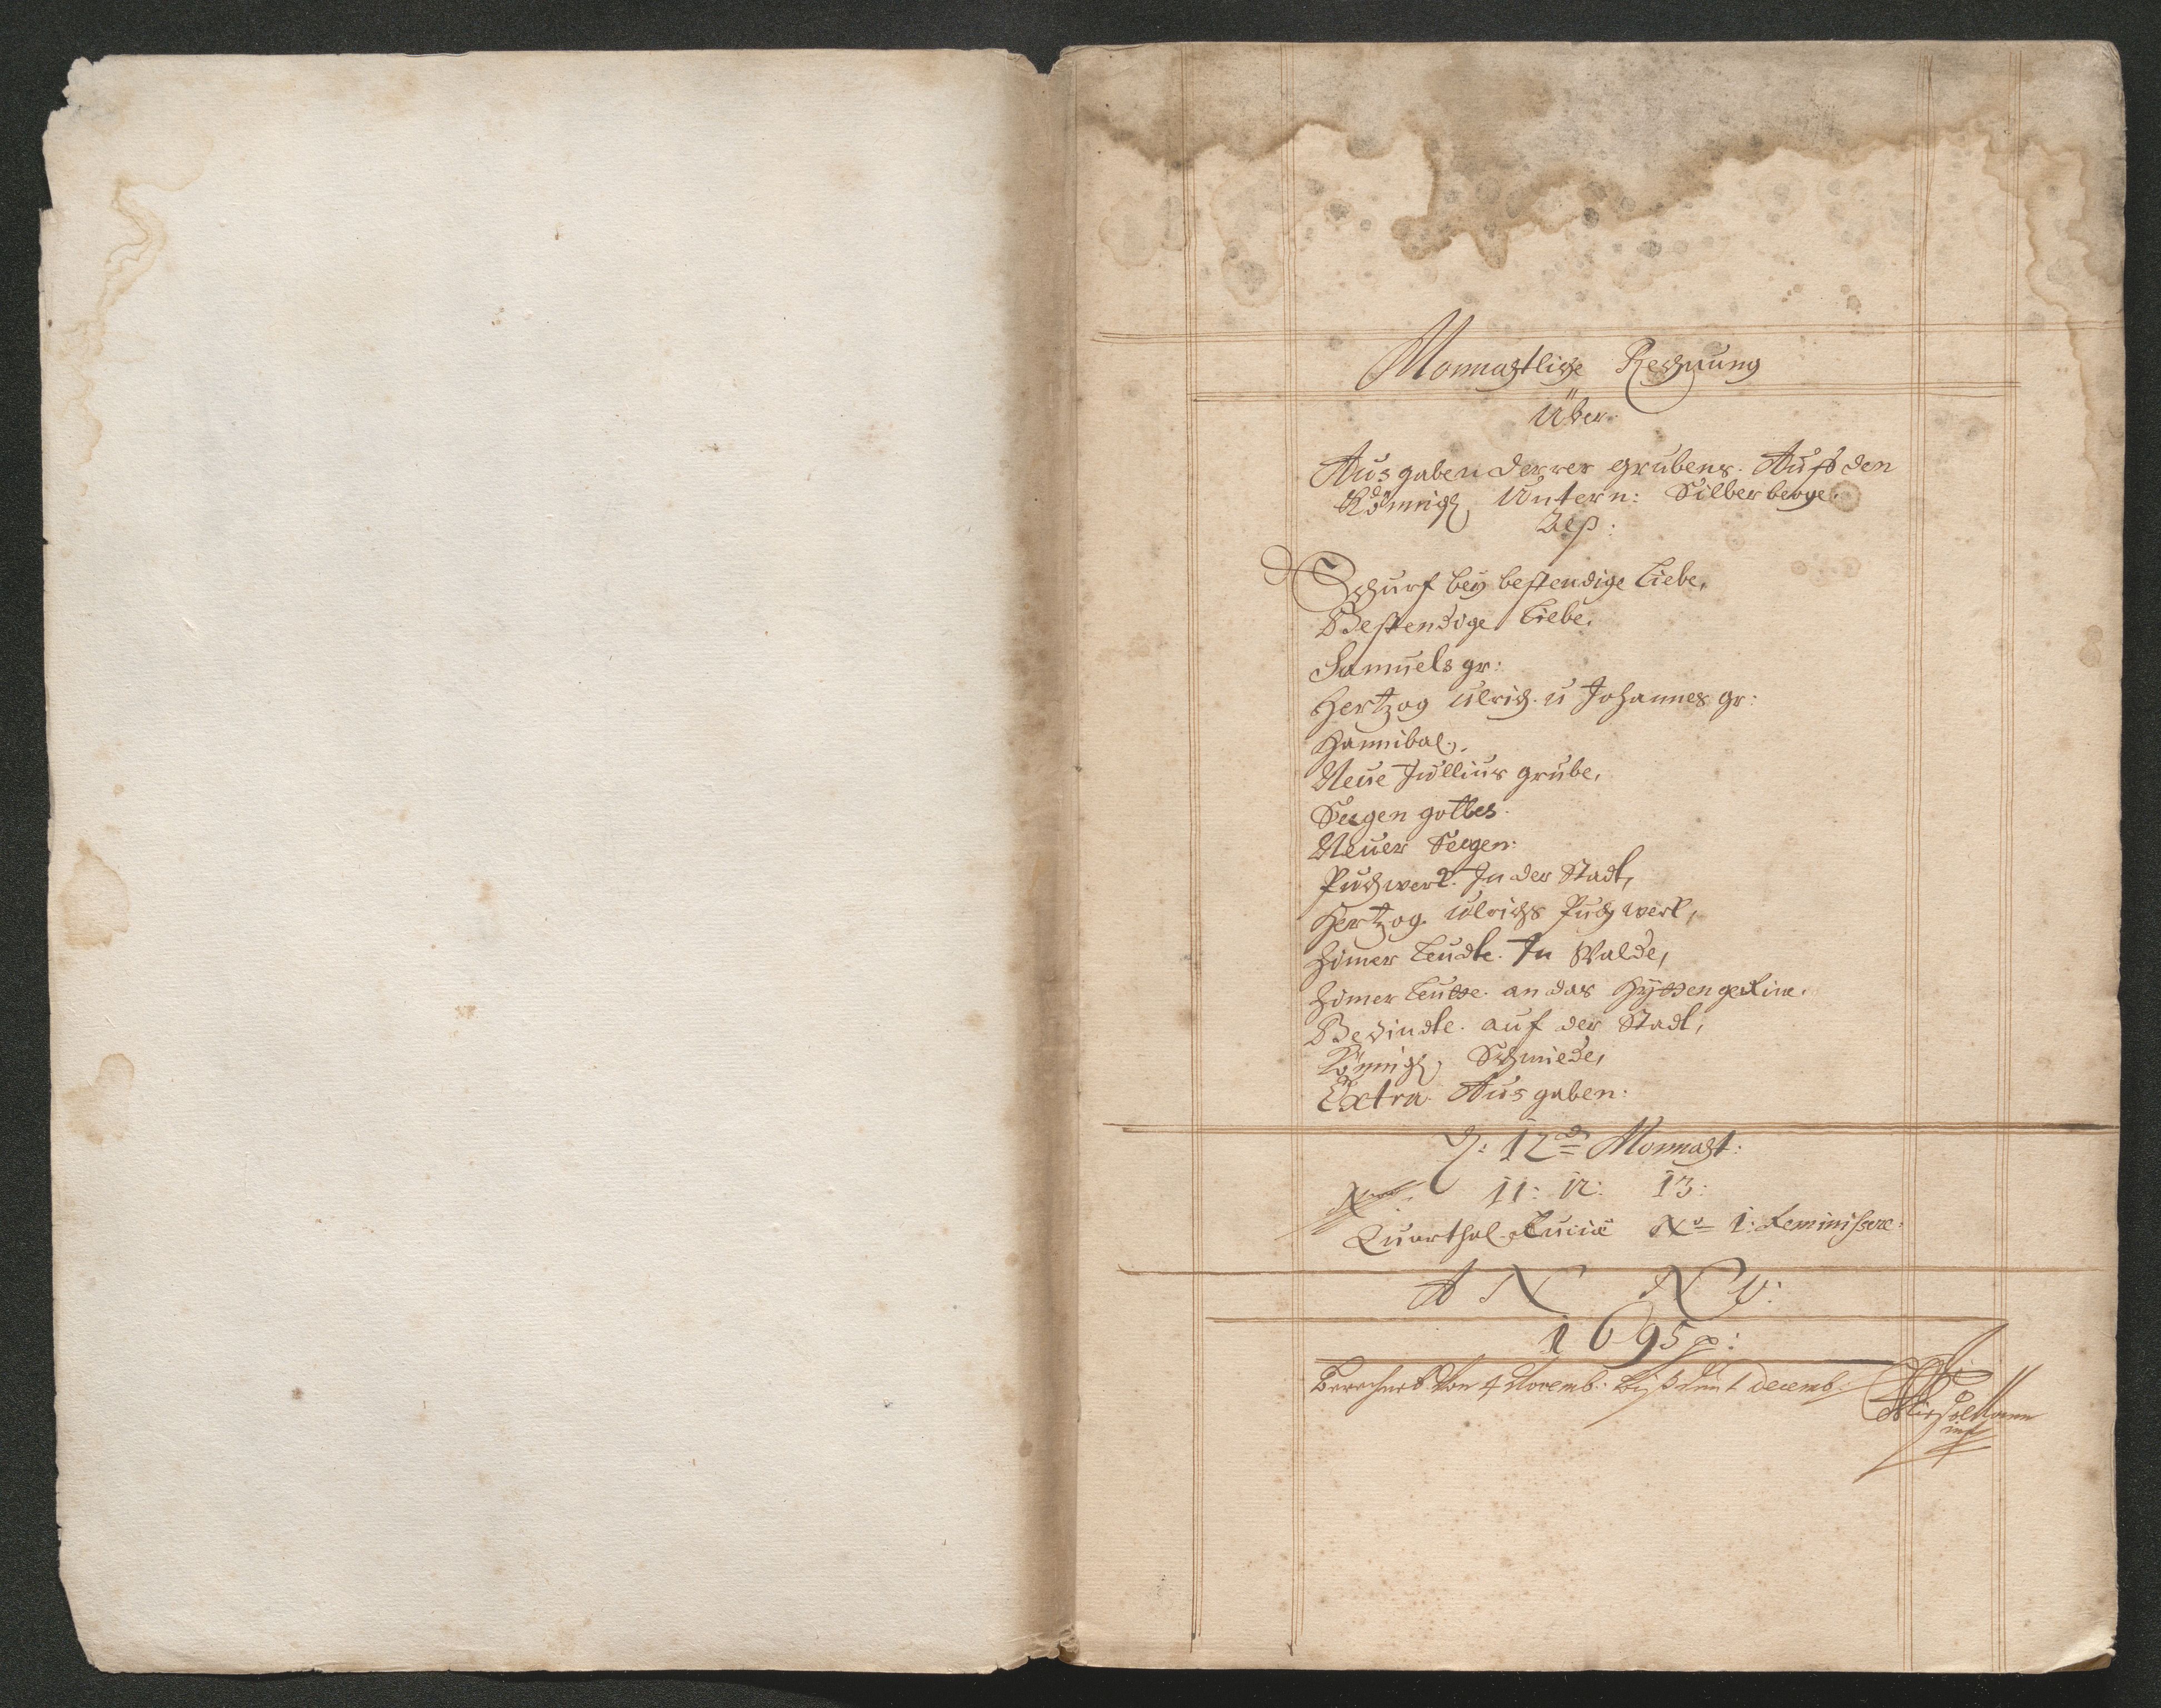 Monnachtliche Rechnung
Über
Ausgaben derrer grubens. Auff den
Königl. Untern: Silberberge.
Alß:
Schurf beÿ bestendige Liebe,
Bestendige Liebe.
Samuels gr:
Hertzog Ulrich. u Johannes gr:
Hannibal.
Neue Jullius grube,
Seegen gottes.
Neuer Seegen:
Puchwerk. In der Stadt,
Hertzog. Ulrichs Puchwerk,
Zimer Leudte. In Walde,
Zimer Leutte. an das
auf der Stadt,
Königl. Schmiede,
Extra Ausgaben:
d: 12 Monnacht:
11: 12: 13:
Quarthal Luciæ No 1: Reminiscere:
A N N O:
1695
Berechnet von 4 Novemb: biß den 1 decemb: